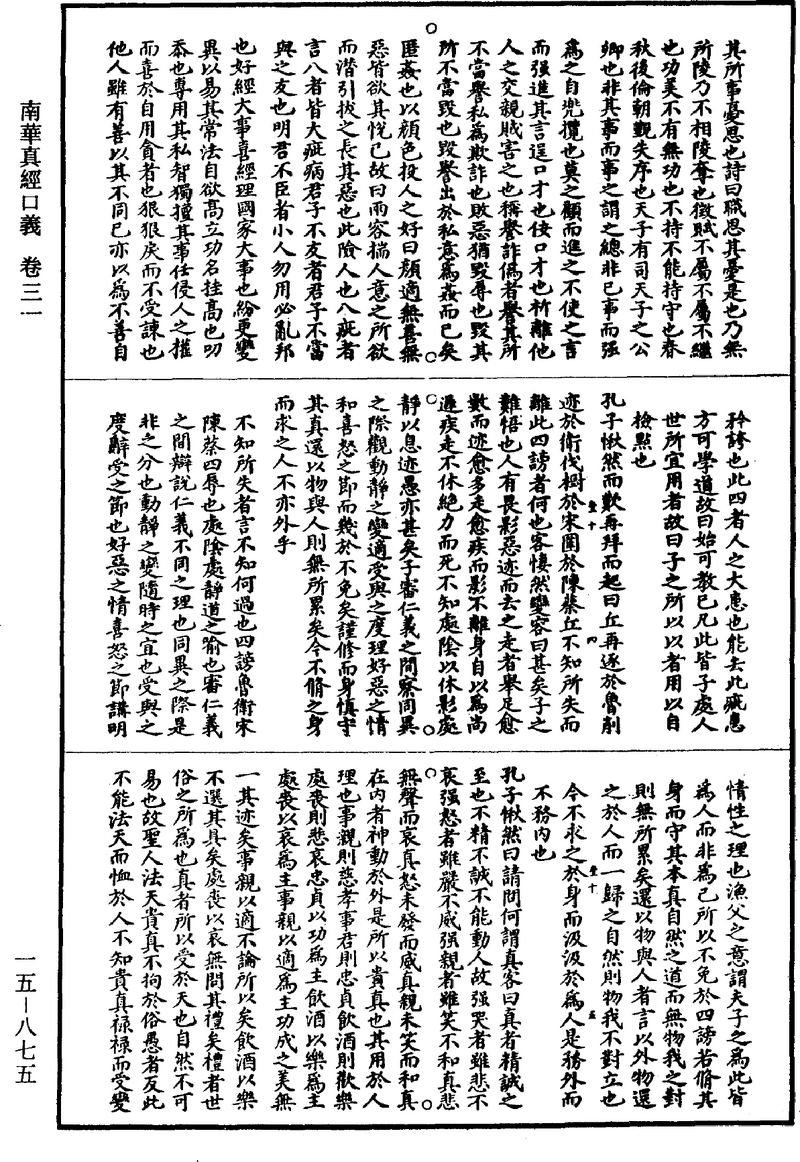 南華真經口義　卷三一
其所事憂思也詩曰職思其憂是也乃無
所陵乃不相陵奪也徵賦不屬不屬不繼
也功美不有無功也不持不能持守也春
秋後倫朝覲失序也天子有司天子之公
卿也非其事而事之謂之總非已事而强
為之自兜攬也莫之顧而進之不使之言
而强進其言逞口才也佞口才也析離他
人之交親賊害之也稱譽詐偽者譽其所
不當譽私為欺詐也敗惡猶毀辱也毀其
所不當毀也毀譽出於私意為姦而已矣
匿姦也以顔色投人之好曰顔適無善無
惡皆欲其悅已故曰兩容揣人意之所欲
而潛引拔之長其惡也此險人也八疵者
言八者皆大疵病君子不友者君子不當
與之友也明君不臣者小人勿用必亂邦
也好經大事喜經理國家大事也紛更變
異以易其常法自欲髙立功名挂髙也叨
忝也專用其私智獨擅其事任侵人之權
而喜於自用貪者也狠狠戾而不受諫也
他人雖有善以其不同己亦以為不善自
矜誇也此四者人之大患也能去此疵患
方可學道故曰始可教已凡此皆子處人
世所宜用者故曰子之所以以者用以自
檢點也
孔子愀然而歎再拜而起曰丘再逐於魯削
迹於衛伐樹於宋圍於陳蔡丘不知所失而
離此四謗者何也客悽然變容曰甚矣子之
難悟也人有畏影惡迹而去之走者舉足愈
數而迹愈多走愈疾而影不離身自以為尚
遲疾走不休絶力而死不知處陰以休影處
靜以息迹愚亦甚矣子審仁義之間察同異
之際觀動靜之變適受與之度理好惡之情
和喜怒之節而幾於不免矣謹修而身慎守
其真還以物與人則無所累矣今不脩之身
而求之人不亦外乎
不知所失者言不知何過也四謗魯衛宋
陳蔡四辱也處陰處靜道之喻也審仁義
之間辯説仁義不同之理也同異之際是
非之分也動靜之變隨時之宜也受與之
度辭受之節也好惡之情喜怒之節講明
情性之理也漁父之意謂夫子之為此皆
為人而非為己所以不免於四謗若脩其
身而守其本真自然之道而無物我之對
則無所累矣還以物與人者言以外物還
之於人而一歸之自然則物我不對立也
今不求之於身而汲汲於為人是務外而
不務内也
孔子愀然曰請問何謂真客曰真者精誠之
至也不精不誠不能動人故强哭者雖悲不
哀强怒者雖嚴不威强親者雖笑不和真悲
無聲而哀真怒未發而威真親未笑而和真
在内者神動於外是所以貴真也其用於人
理也事親則慈孝事君則忠貞飲酒則歡樂
處喪則悲哀忠貞以功為主飲酒以樂為主
處喪以哀為主事親以適為主功成之美無
一其迹矣事親以適不論所以矣飲酒以樂
不選其具矣處喪以哀無問其禮矣禮者世
俗之所為也真者所以受於天也自然不可
易也故聖人法天貴真不拘於俗愚者反此
不能法天而恤於人不知貴真祿祿而受變
一五—八七五